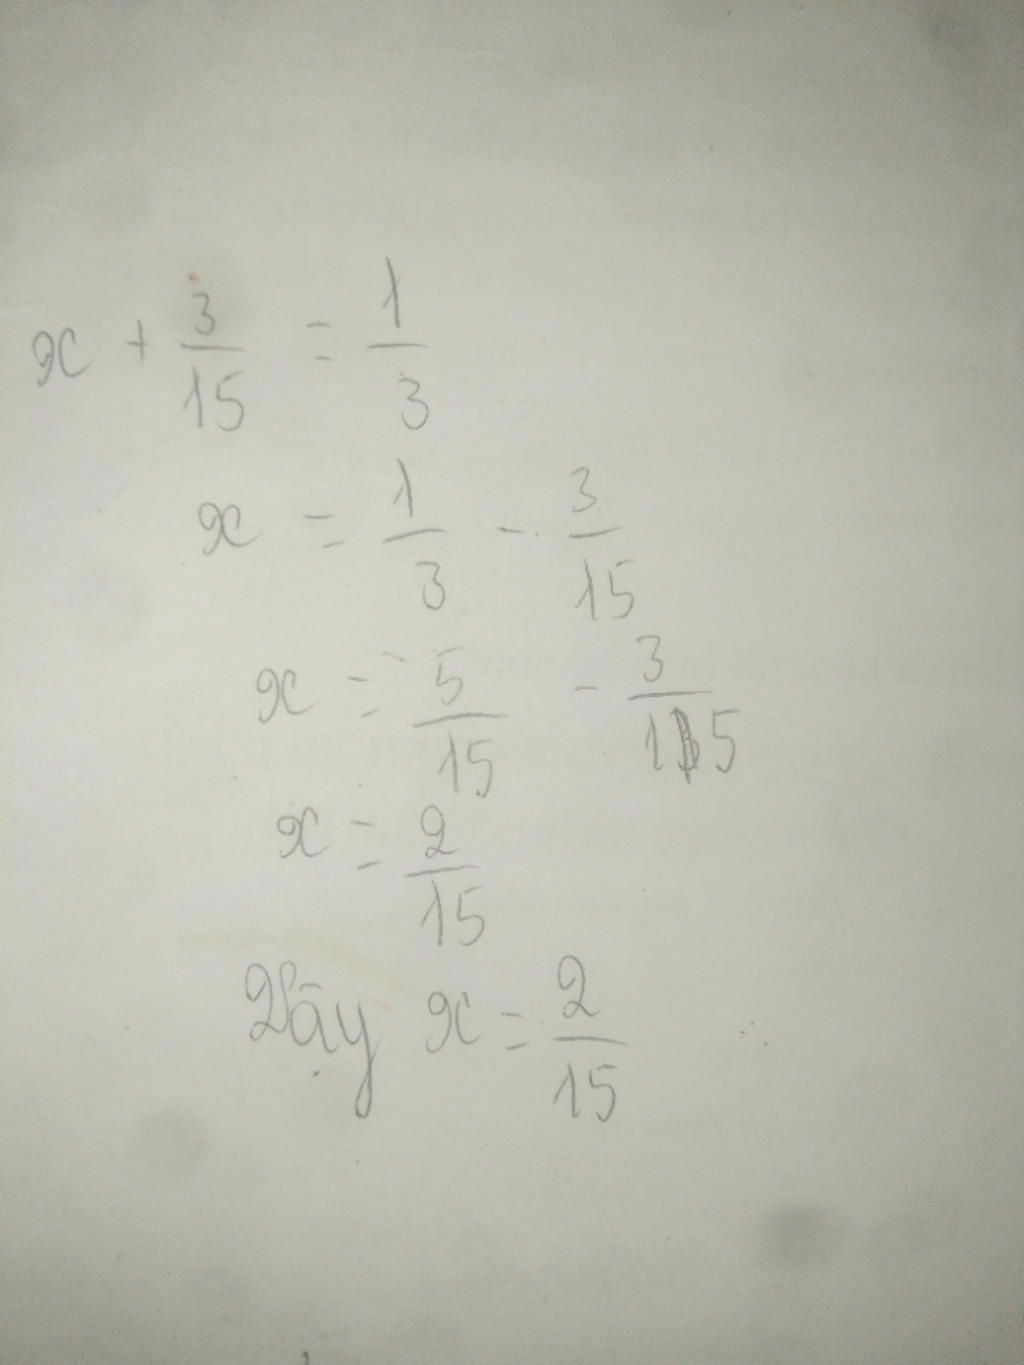 x + 3/15 = 1/3
x = 1/3 - 3/15
x = 5/15 - 3/15
x = 2/15
Vậy x = 2/15